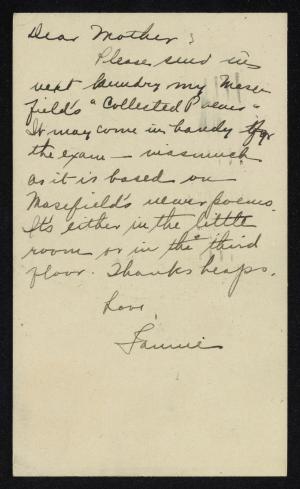 Dear Mother;
Please send in
next laundry my Mase-
field's "Collected Poems"
It may come in handy for
the exam — inasmuch
as it is based on
Masefield's newer poems.
It's either in the little
room or in the third
floor. Thanks heaps.
Love,
Fannie